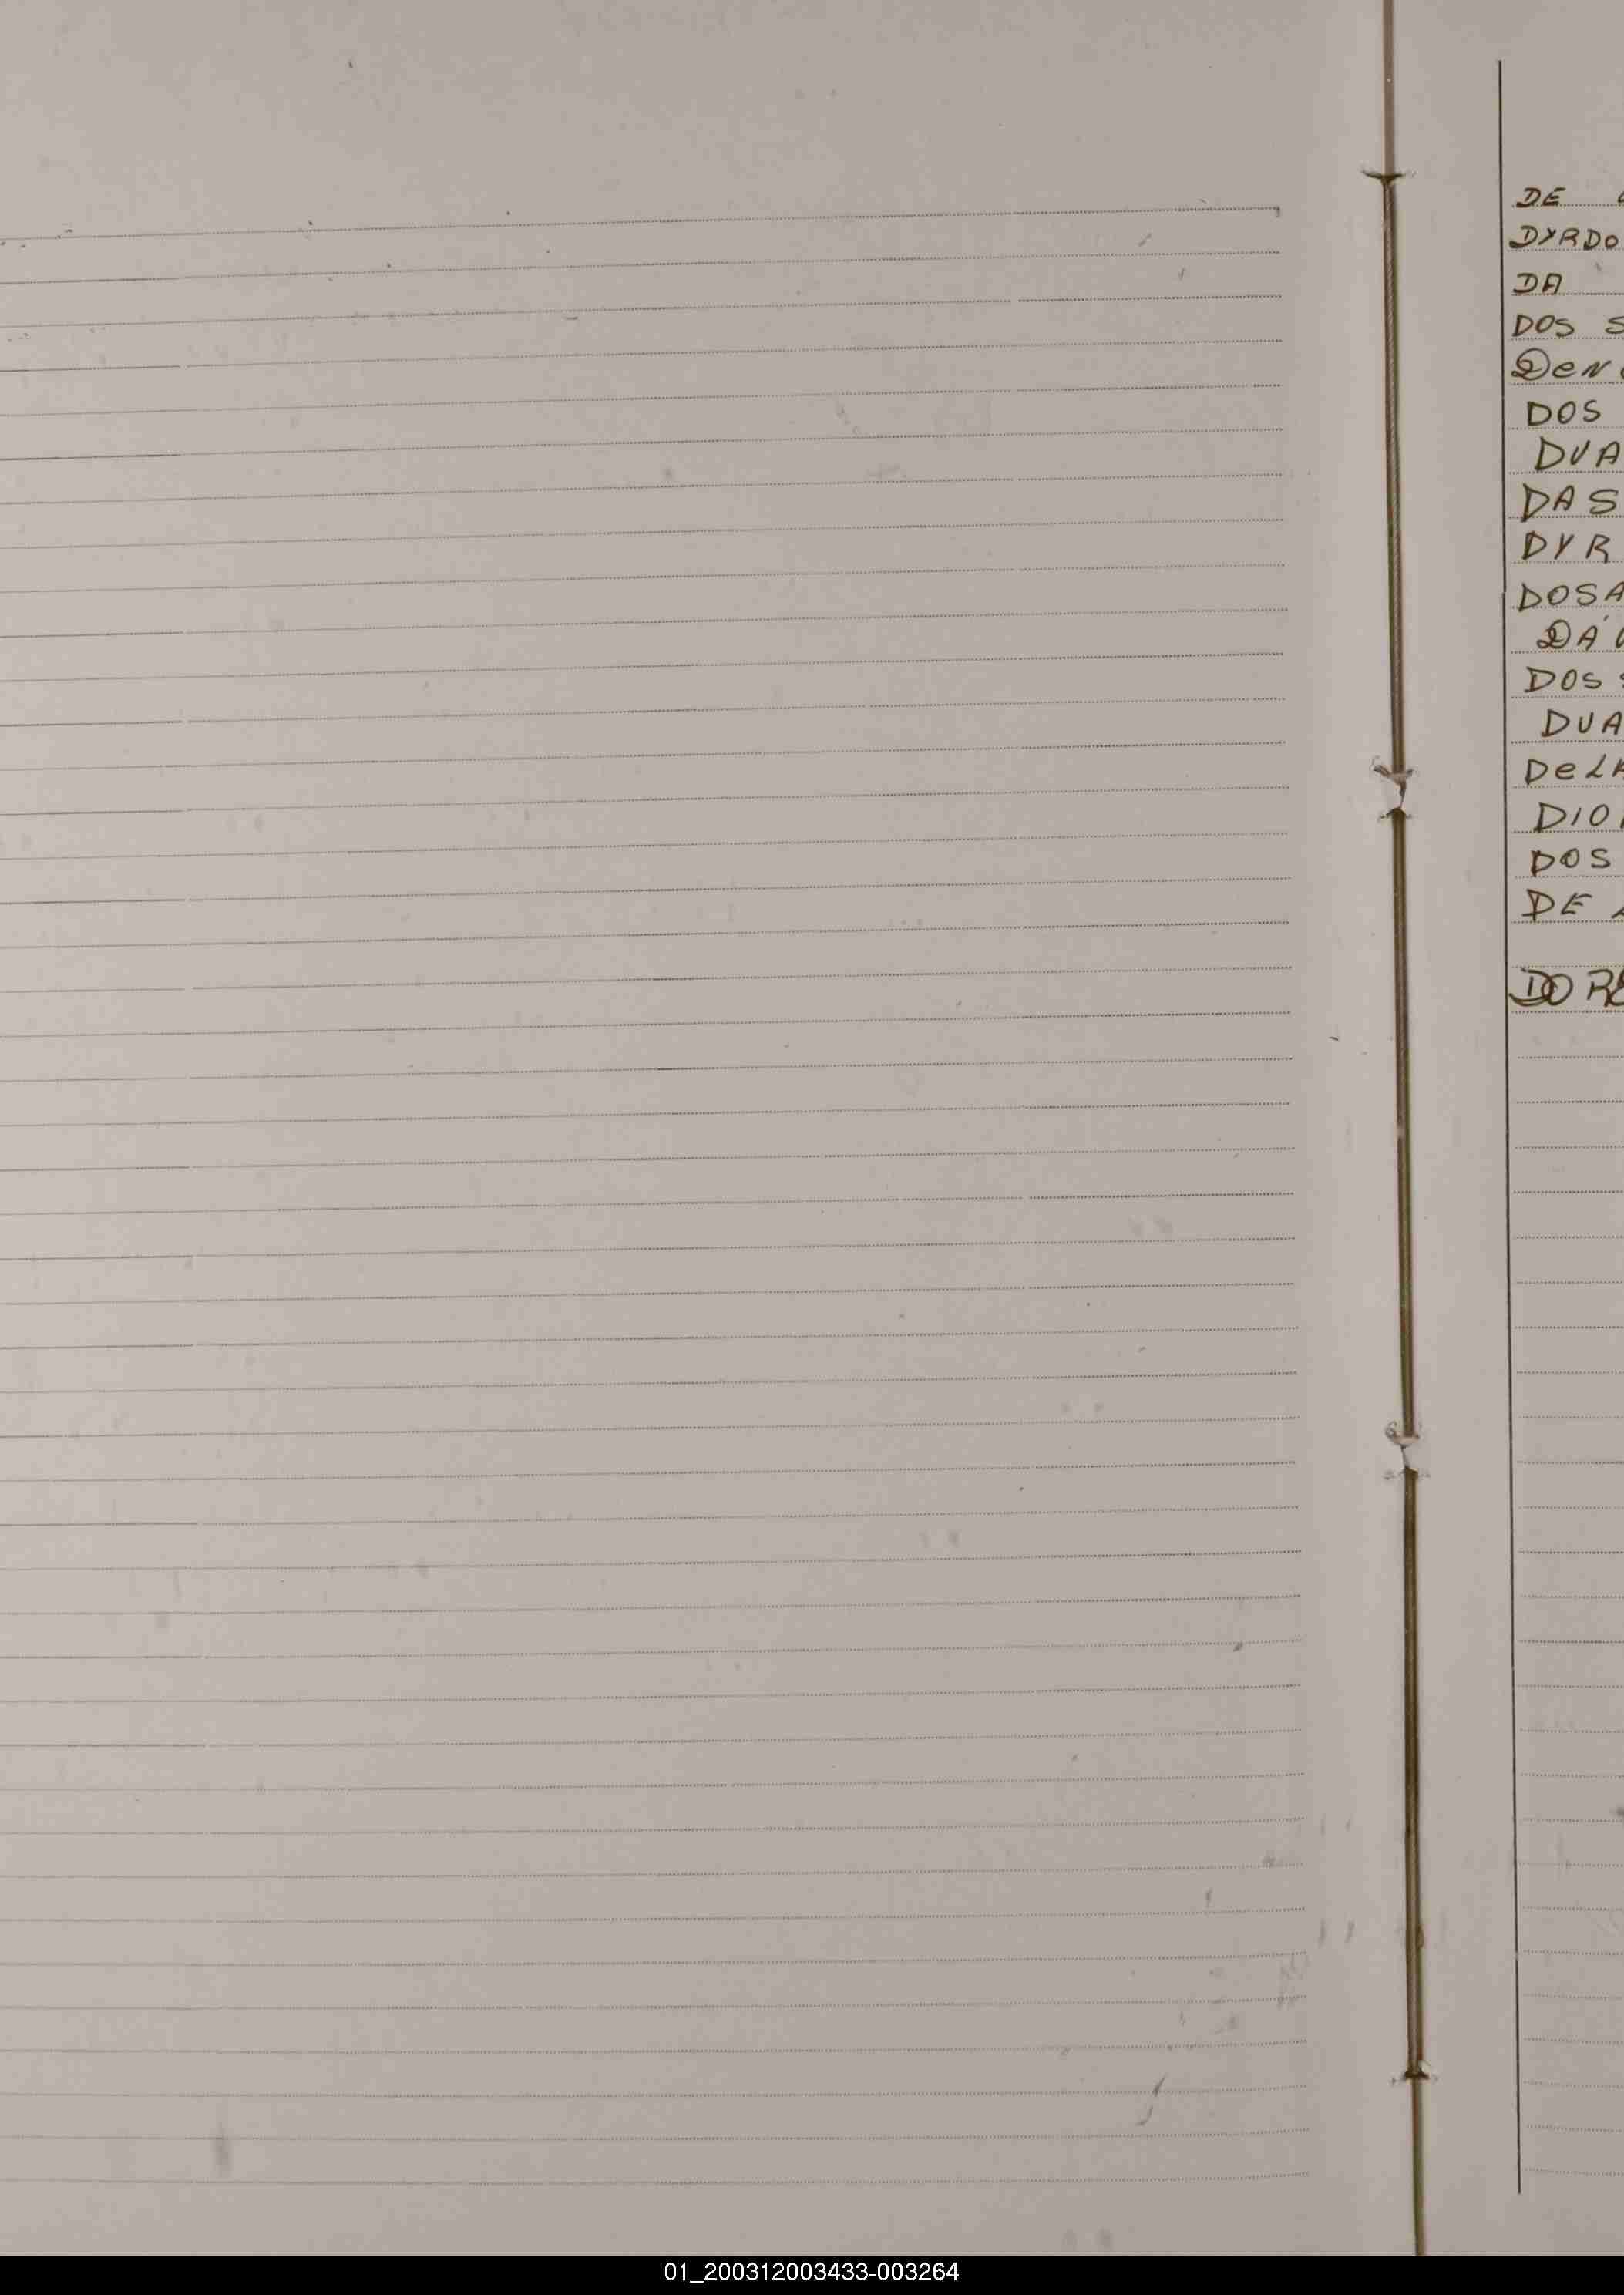 DE
DYRDO
DA
DOS S
Den
DOS
DUA
DAS
DYR
DOSA
DÁ
DOS S
DUA
DeLA
DIO
DOS
DE
DORE
01_200312003433-003264